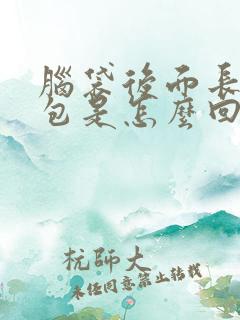 腦袋後面長
包是怎麼回
杭師大
未任同意禁止轉載